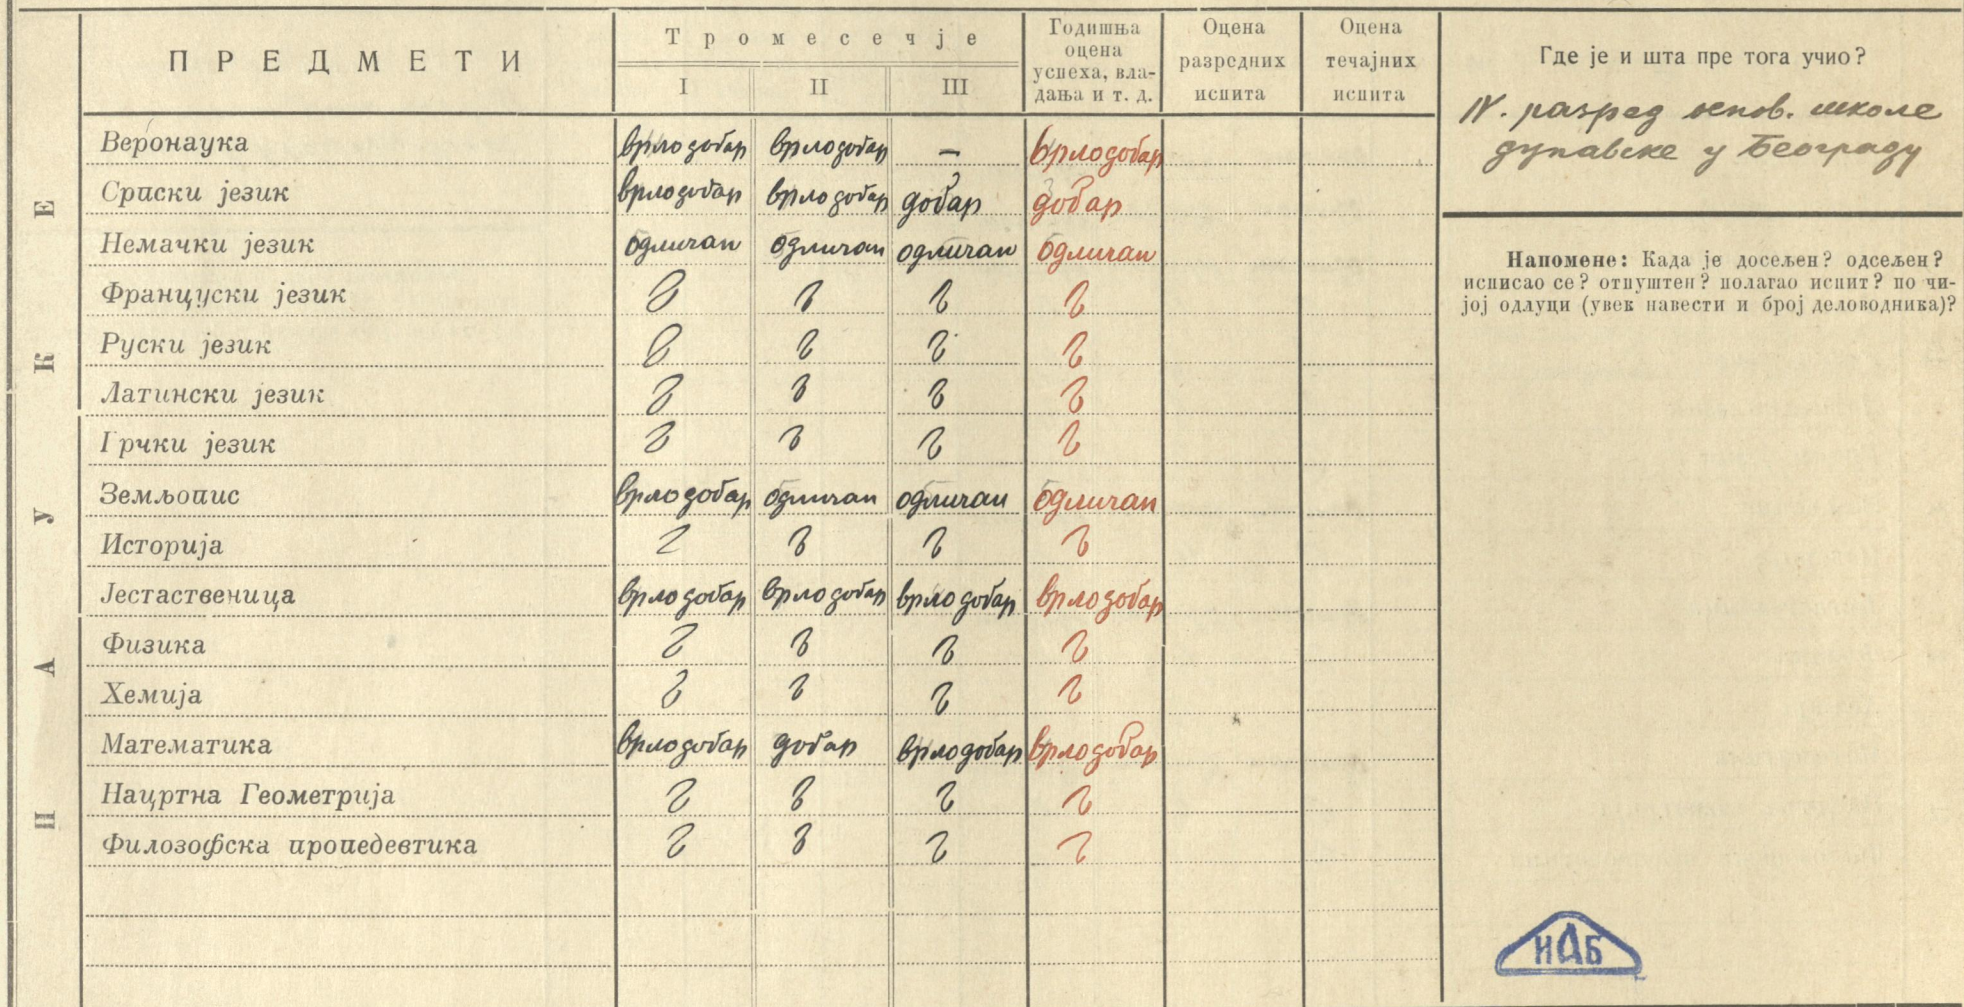 ПРЕДМЕТИ
Тромесечје
I II III
Годишња оцена успеха, владања и т. д.
Оцена разредних испита
Оцена течајних испита
НАУКЕ
Веронаука врлодобар врлодобар — врлодобар
Српски језик врлодобар врлодобар добар добар
Немачки језик одличан одличан одличан одличан
Француски језик
Руски језик
Латински језик
Грчки језик
Земљопис врлодобар одличан одличан одличан
Историја
Јестаственица врлодобар врлодобар врлодобар врлодобар
Физика
Хемија
Математика врлодобар добар врлодобар врлодобар
Нацртна Геометрија
Филозофска пропедевтика
Где је и шта пре тога учио?
IV. разред основ. школе
дунавске у Београду
Напомене: Када је досељен? одсељен?
исписао се? отпуштен? полагао испит? по чи-
јој одлуци (увек навести и број деловодника)?
ИАБ